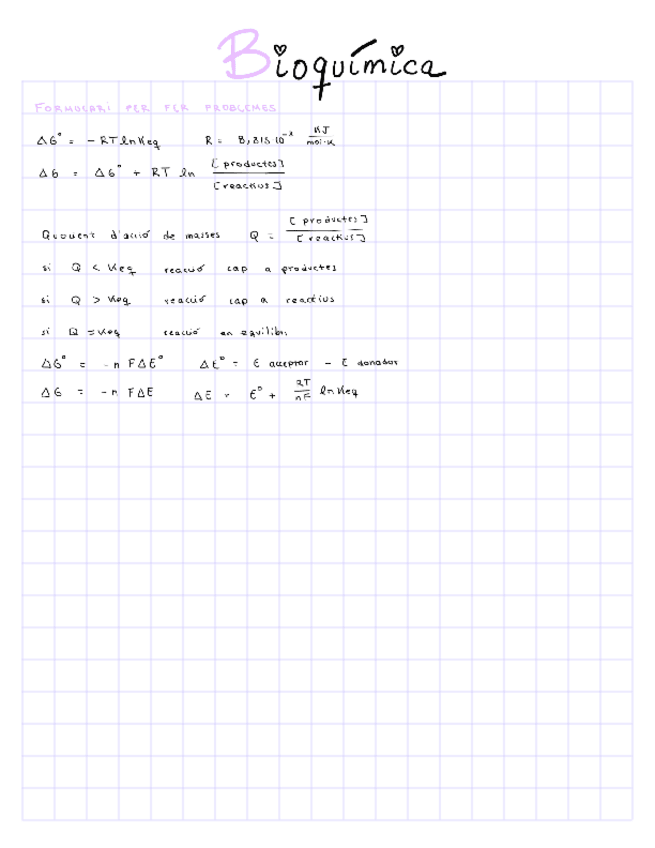 Bioquímica
FORMULARI PER FER PROBLEMES
ΔG° = - RT ln Keq R = 8,315 10⁻³ KJ / mol·K
ΔG = ΔG° + RT ln [productes] / [reactius]
Quocient d'acció de masses Q = [productes] / [reactius]
si Q < Keq reacció cap a productes
si Q > Keq reacció cap a reactius
si Q = Keq reacció en equilibri
ΔG° = -n FΔE° ΔE° = E aceptor - E donador
ΔG = -n FΔE ΔE = E° + RT / nF ln Keq